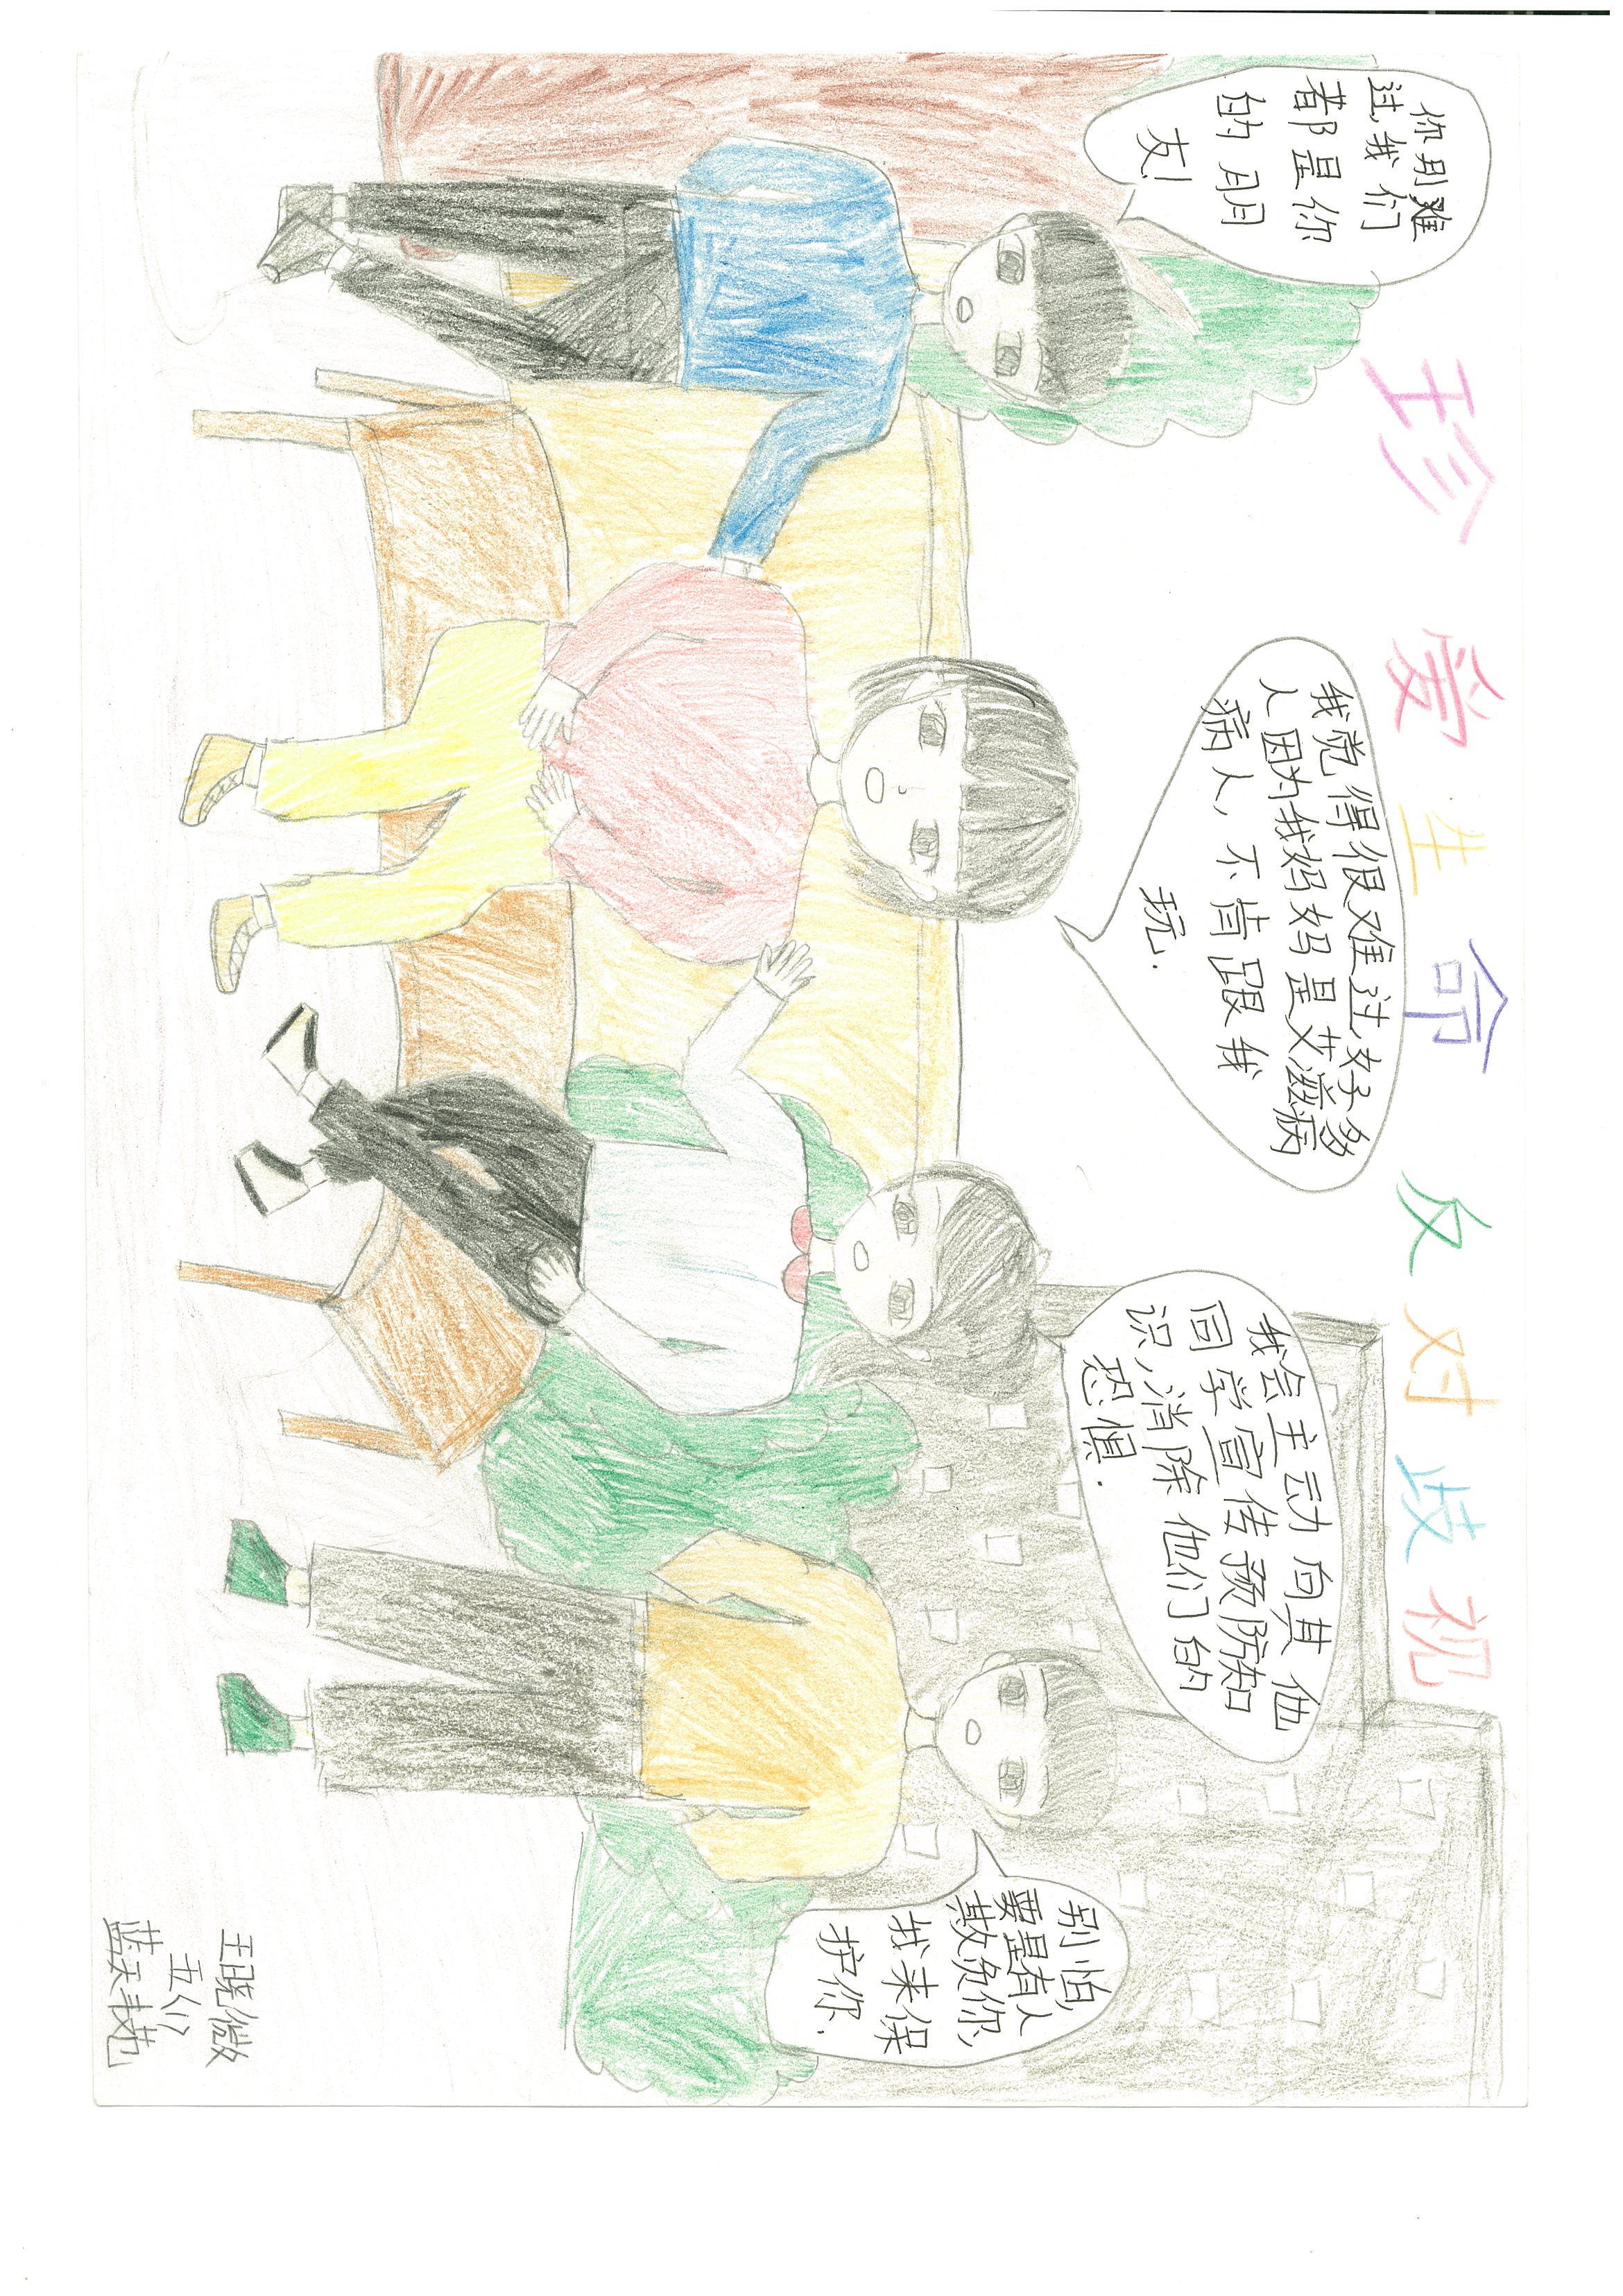 珍爱生命 反对歧视
你别难
过,我们
都是你
的朋
友!
我觉得很难过,好多
人因为我妈妈是艾滋病
病人,不肯跟我
玩.
我会主动向其他
同学宣传预防知
识,消除他们的
恐惧.
别怕,
要是有人
欺负你,
我来保
护你.
王晓微
五(1)
蓝天